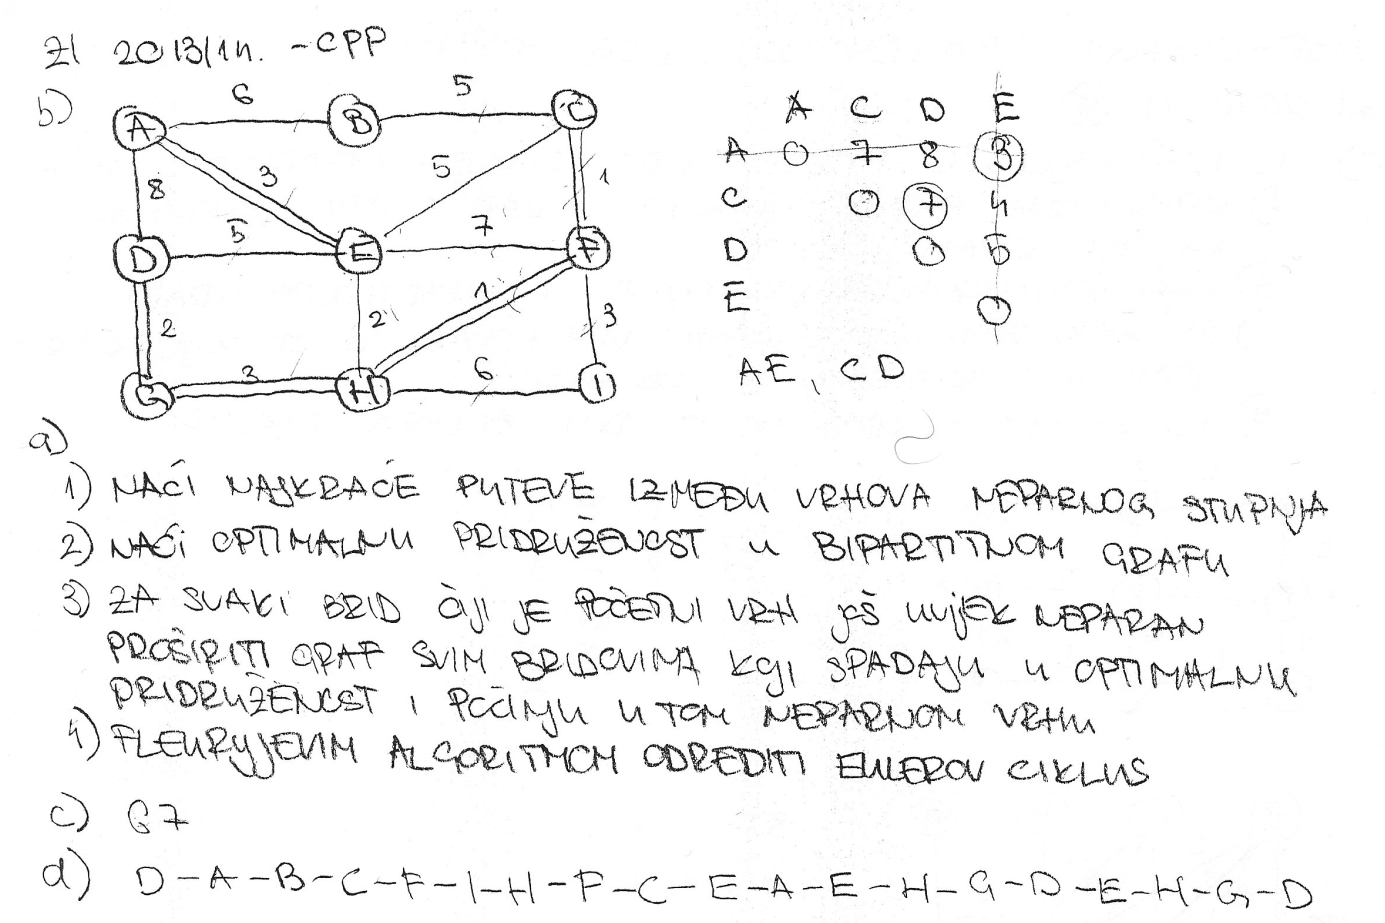 ZI 2013/14. - CPP
b)
A 6 B 5 C
8 3 5 1
D 5 E 7 F
2 2 1 3
G 3 H 6 I
A C D E
A 0 7 8 3
C 0 7 4
D 0 5
E 0
AE, CD
a)
1) NAĆI NAJKRAĆE PUTEVE IZMEĐU VRHOVA NEPARNOG STUPNJA
2) NAĆI OPTIMALNU PRIDRUŽENOST U BIPARTITNOM GRAFU
3) ZA SVAKI BRID ČIJI JE POČETNI VRH JOŠ UVIJEK NEPARAN
PROŠIRITI GRAF SVIM BRIDOVIMA KOJI SPADAJU U OPTIMALNU
PRIDRUŽENOST I POČINJU U TOM NEPARNOM VRHU
4) FLEURYJEVIM ALGORITMOM ODREDITI EULEROV CIKLUS
c) 67
d) D-A-B-C-F-I-H-F-C-E-A-E-H-G-D-E-H-G-D